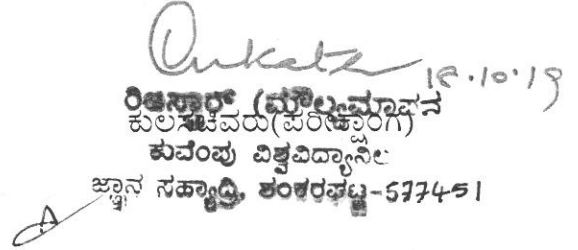 18.10.19
ರಿಜಿಸ್ಟ್ರಾರ್ (ಮೌಲ್ಯಮಾಪನ
ಕುಲಸಚಿವರು(ಪರೀಕ್ಷಾಂಗ)
ಕುವೆಂಪು ವಿಶ್ವವಿದ್ಯಾನಿಲ
ಜ್ಞಾನ ಸಹ್ಯಾದ್ರಿ, ಶಂಕರಘಟ್ಟ-577451